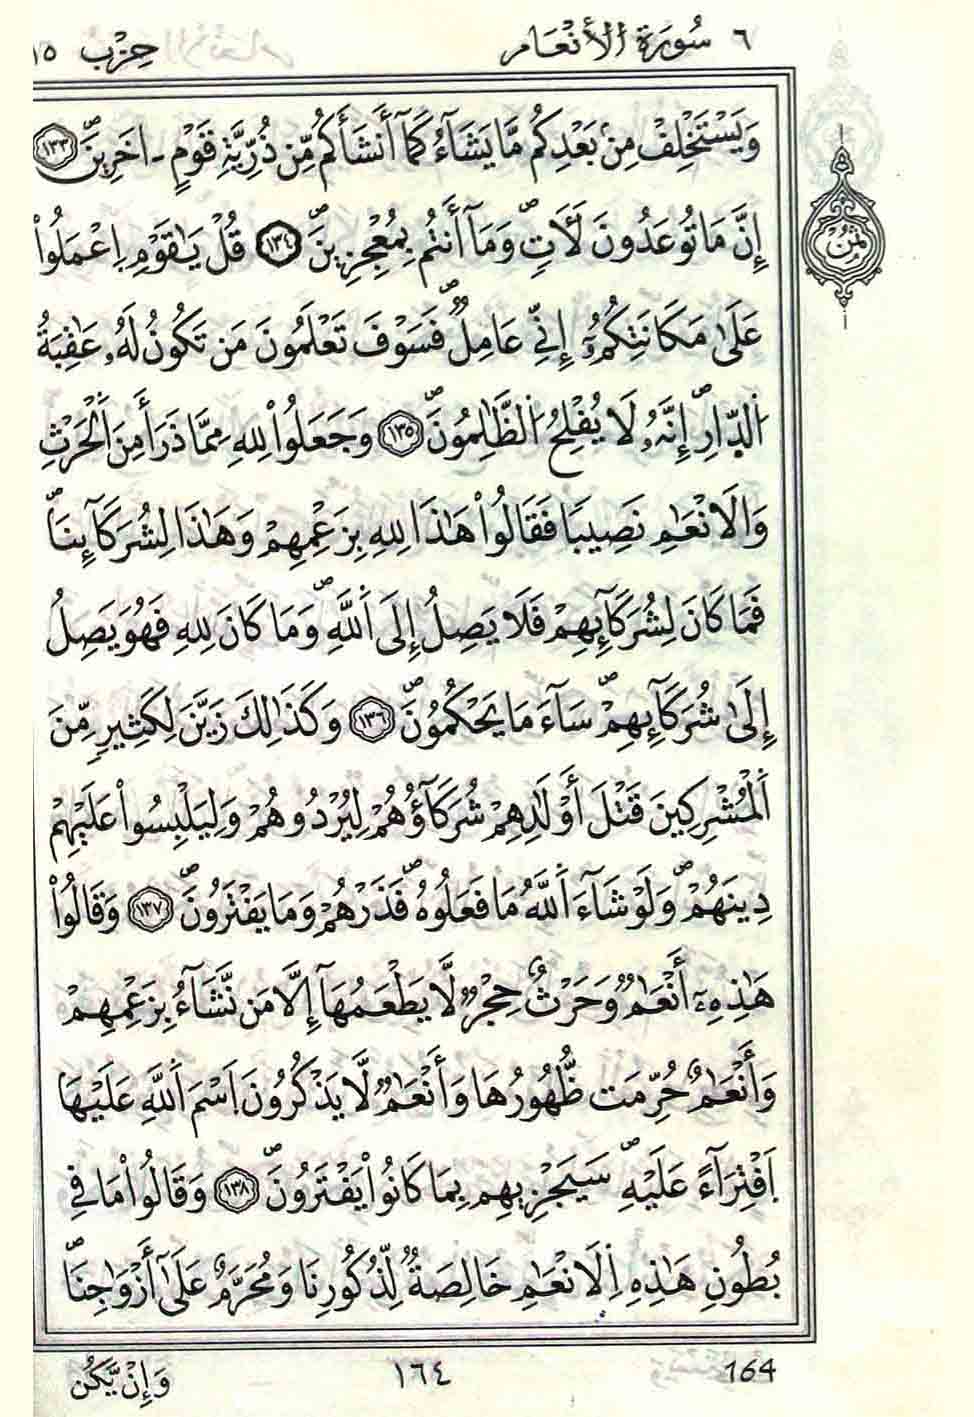 ٦ سُورَةُ الأَنْعَام حِزْب ١٥
وَيَسْتَخْلِفْ مِنۢ بَعْدِكُم مَّا يَشَآءُ كَمَآ أَنشَأَكُم مِّن ذُرِّيَّةِ قَوْمٍ ـ اخَرِينَۖ ١٣٣
إِنَّ مَا تُوعَدُونَ لَأَتٖۖ وَمَآ أَنتُم بِمُعْجِزِينَۖ ١٣٤ قُلْ يَٰقَوْمِ اِعْمَلُواْ
عَلَىٰ مَكَانَتِكُمُۥٓ إِنِّے عَامِلٞۖ فَسَوْفَ تَعْلَمُونَ مَن تَكُونُ لَهُۥ عَٰقِبَةُ
اُلدّ۪ارِۖ إِنَّهُۥ لَا يُفْلِحُ اُلظَّٰلِمُونَۖ ١٣٥ وَجَعَلُواْ لِلهِ مِمَّا ذَرَأَ مِنَ اَلْحَرْثِ
وَالَانْعَٰمِ نَصِيبٗا فَقَالُواْ هَٰذَا لِلهِ بِزَعْمِهِمْ وَهَٰذَا لِشُرَكَآئِنَاۖ
فَمَا كَانَ لِشُرَكَآئِهِمْ فَلَا يَصِلُ إِلَى اَللَّهِۖ وَمَا كَانَ لِلهِ فَهُوَ يَصِلُ
إِلَىٰ شُرَكَآئِهِمْۖ سَآءَ مَا يَحْكُمُونَۖ ١٣٦ وَكَذَٰلِكَ زَيَّنَ لِكَثِيرٖ مِّنَ
اَلْمُشْرِكِينَ قَتْلَ أَوْلَٰدِهِمْ شُرَكَآؤُهُمْ لِيُرْدُوهُمْ وَلِيَلْبِسُواْ عَلَيْهِمْ
دِينَهُمْۖ وَلَوْ شَآءَ اَللَّهُ مَا فَعَلُوهُۖ فَذَرْهُمْ وَمَا يَفْتَرُونَۖ ١٣٧ وَقَالُواْ
هَٰذِهِۦٓ أَنْعَٰمٞ وَحَرْثٌ حِجْرٞ لَّا يَطْعَمُهَآ إِلَّا مَن نَّشَآءُ بِزَعْمِهِمْ
وَأَنْعَٰمٌ حُرِّمَت ظُّهُورُهَا وَأَنْعَٰمٞ لَّا يَذْكُرُونَ اَسْمَ اَللَّهِ عَلَيْهَا
اَفْتِرَآءً عَلَيْهِۖ سَيَجْزِيهِم بِمَا كَانُواْ يَفْتَرُونَۖ ١٣٨ وَقَالُواْ مَا فِے
بُطُونِ هَٰذِهِ اِلَانْعَٰمِ خَالِصَةٞ لِّذُكُورِنَا وَمُحَرَّمٌ عَلَىٰٓ أَزْوَٰجِنَاۖ
ثُمُن
164 ١٦٤ وَإِنْ يَّكُن